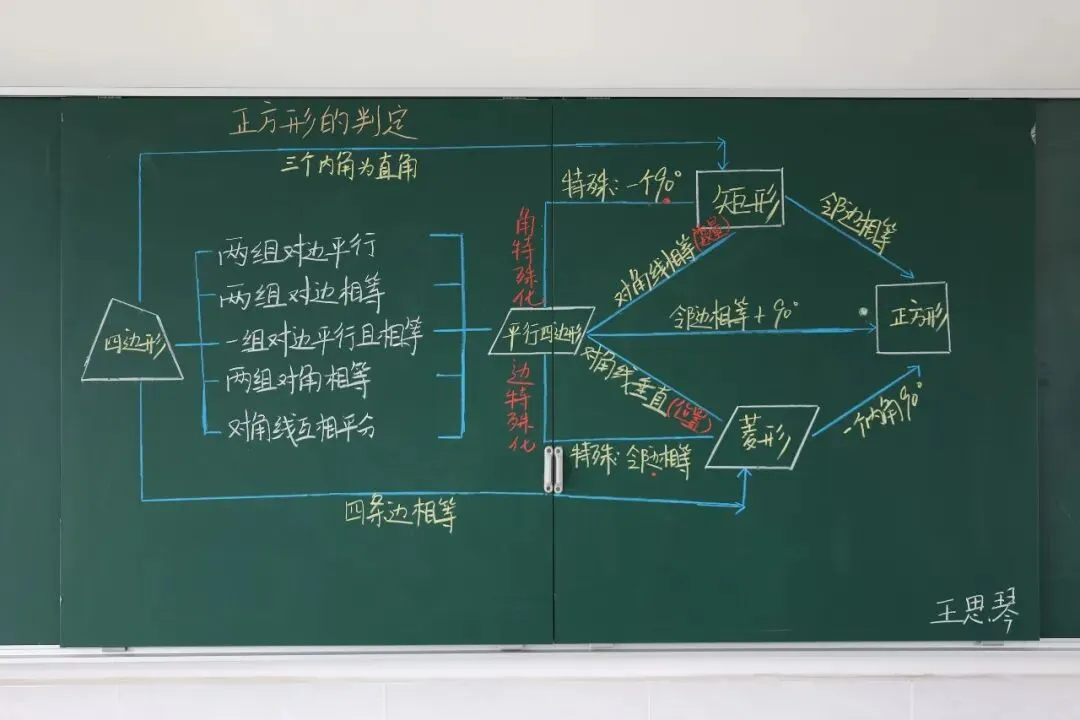 正方形的判定
三个内角为直角
四边形
两组对边平行
两组对边相等
一组对边平行且相等
两组对角相等
对角线互相平分
四条边相等
角特殊化
平行四边形
边特殊化
特殊:一个90°
对角线相等(数量)
矩形
邻边相等
邻边相等+90°
正方形
对角线垂直(位置)
菱形
一个内角90°
特殊:邻边相等
王思琴